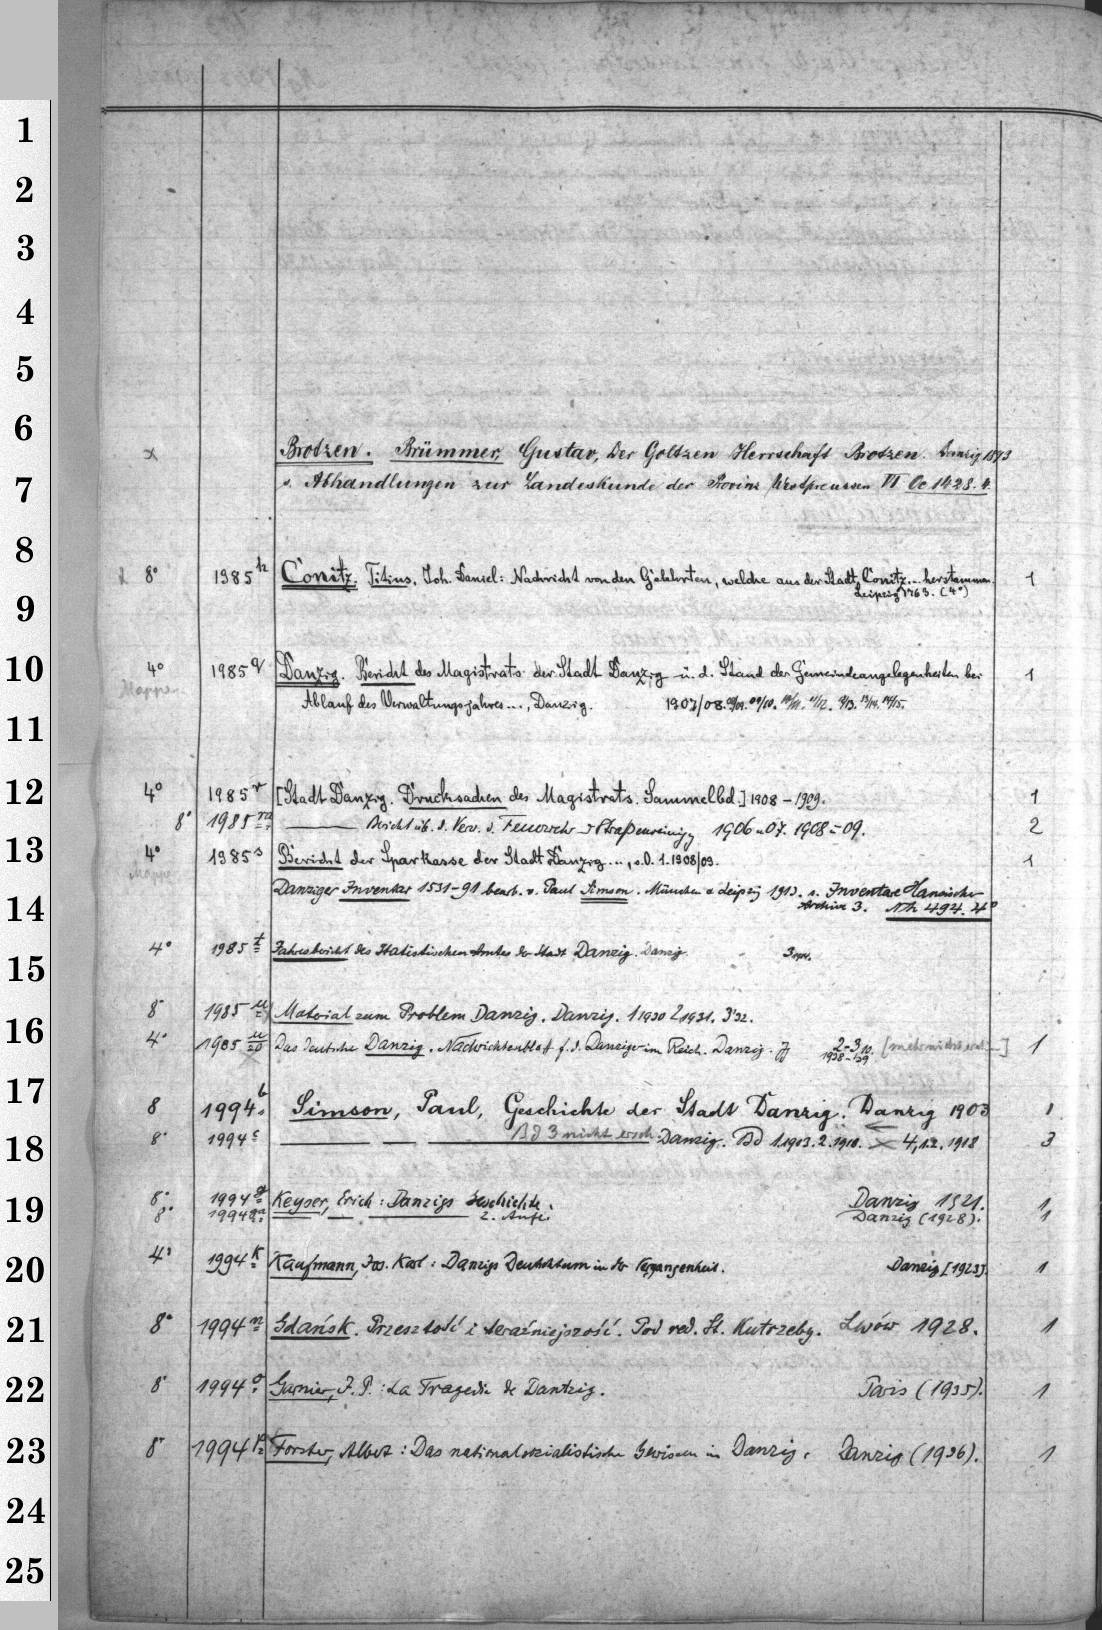 1
2
3
4
5
6
x Brotzen. Brümmer, Gustav, Der Goltzen Herrschaft Brotzen. Danzig 1893
7
s. Abhandlungen zur Landeskunde der Provinz Westpreussen VI Oc 1428. 4.
8
8° 1985 h Conitz. Titius, Joh. Daniel: Nachricht von den Gelehrten, welche aus der Stadt Conitz... herstammen. 1
Leipzig 1763. (4°)
9
10
4° 1985 q Danzig. Bericht des Magistrats der Stadt Danzig ü. d. Stand der Gemeindeangelegenheiten bei 1
Mappe
Ablauf des Verwaltungsjahres..., Danzig. 1907/08. 08/09. 09/10. 10/11. 11/12. 12/13. 13/14. 14/15.
11
12
4° 1985 r [Stadt Danzig. Drucksachen des Magistrats. Sammelbd.] 1908 – 1909. 1
8° 1985 Bericht üb. d. Verw. d. Feuerwehr u Straßenreinigg 1906 u 07. 1908 – 09. 2
13
4° 1985 s Bericht der Sparkasse der Stadt Danzig..., s.O. 1. 1908/09. 1
Mappe
Danziger Inventar 1531–91 bearb. v. Paul Simson. München u Leipzig 1913. s. Inventare Hansischer
14
Archive 3. Nh 494. 4°
4° 1985 t Jahresbericht des Statistischen Amtes der Stadt Danzig. Danzig.
15
8° 1985 u Material zum Problem Danzig. Danzig. 1 1930 2 1931. 3 '32.
16
4° 1985 u/20 Das deutsche Danzig. Nachrichtenblatt f. d. Danziger im Reich. Danzig. Jg 2-3 1
1938-39
17
8 1994 b Simson, Paul, Geschichte der Stadt Danzig. Danzig 1903 1
Bd 3 nicht ersch.
18
8° 1994 c Danzig. Bd 1. 1903. 2. 1918. 4, 1.2. 1918 3
19
8° 1994 g Keyser, Erich: Danzigs Geschichte. Danzig 1921. 1
8° 1994 ga 2. Aufl. Danzig (1928). 1
20
4° 1994 k Kaufmann, Jos. Karl: Danzigs Deutschtum in der Vergangenheit. Danzig [1923]. 1
21
8° 1994 n Gdańsk. Przeszłość i teraźniejszość. Pod red. St. Kutrzeby. Lwów 1928. 1
22
8° 1994 o Garnier, J. P.: La Tragedie de Dantzig. Paris (1935). 1
23
8° 1994 p Forster, Albert: Das nationalsozialistische Gewissen in Danzig. Danzig (1936). 1
24
25